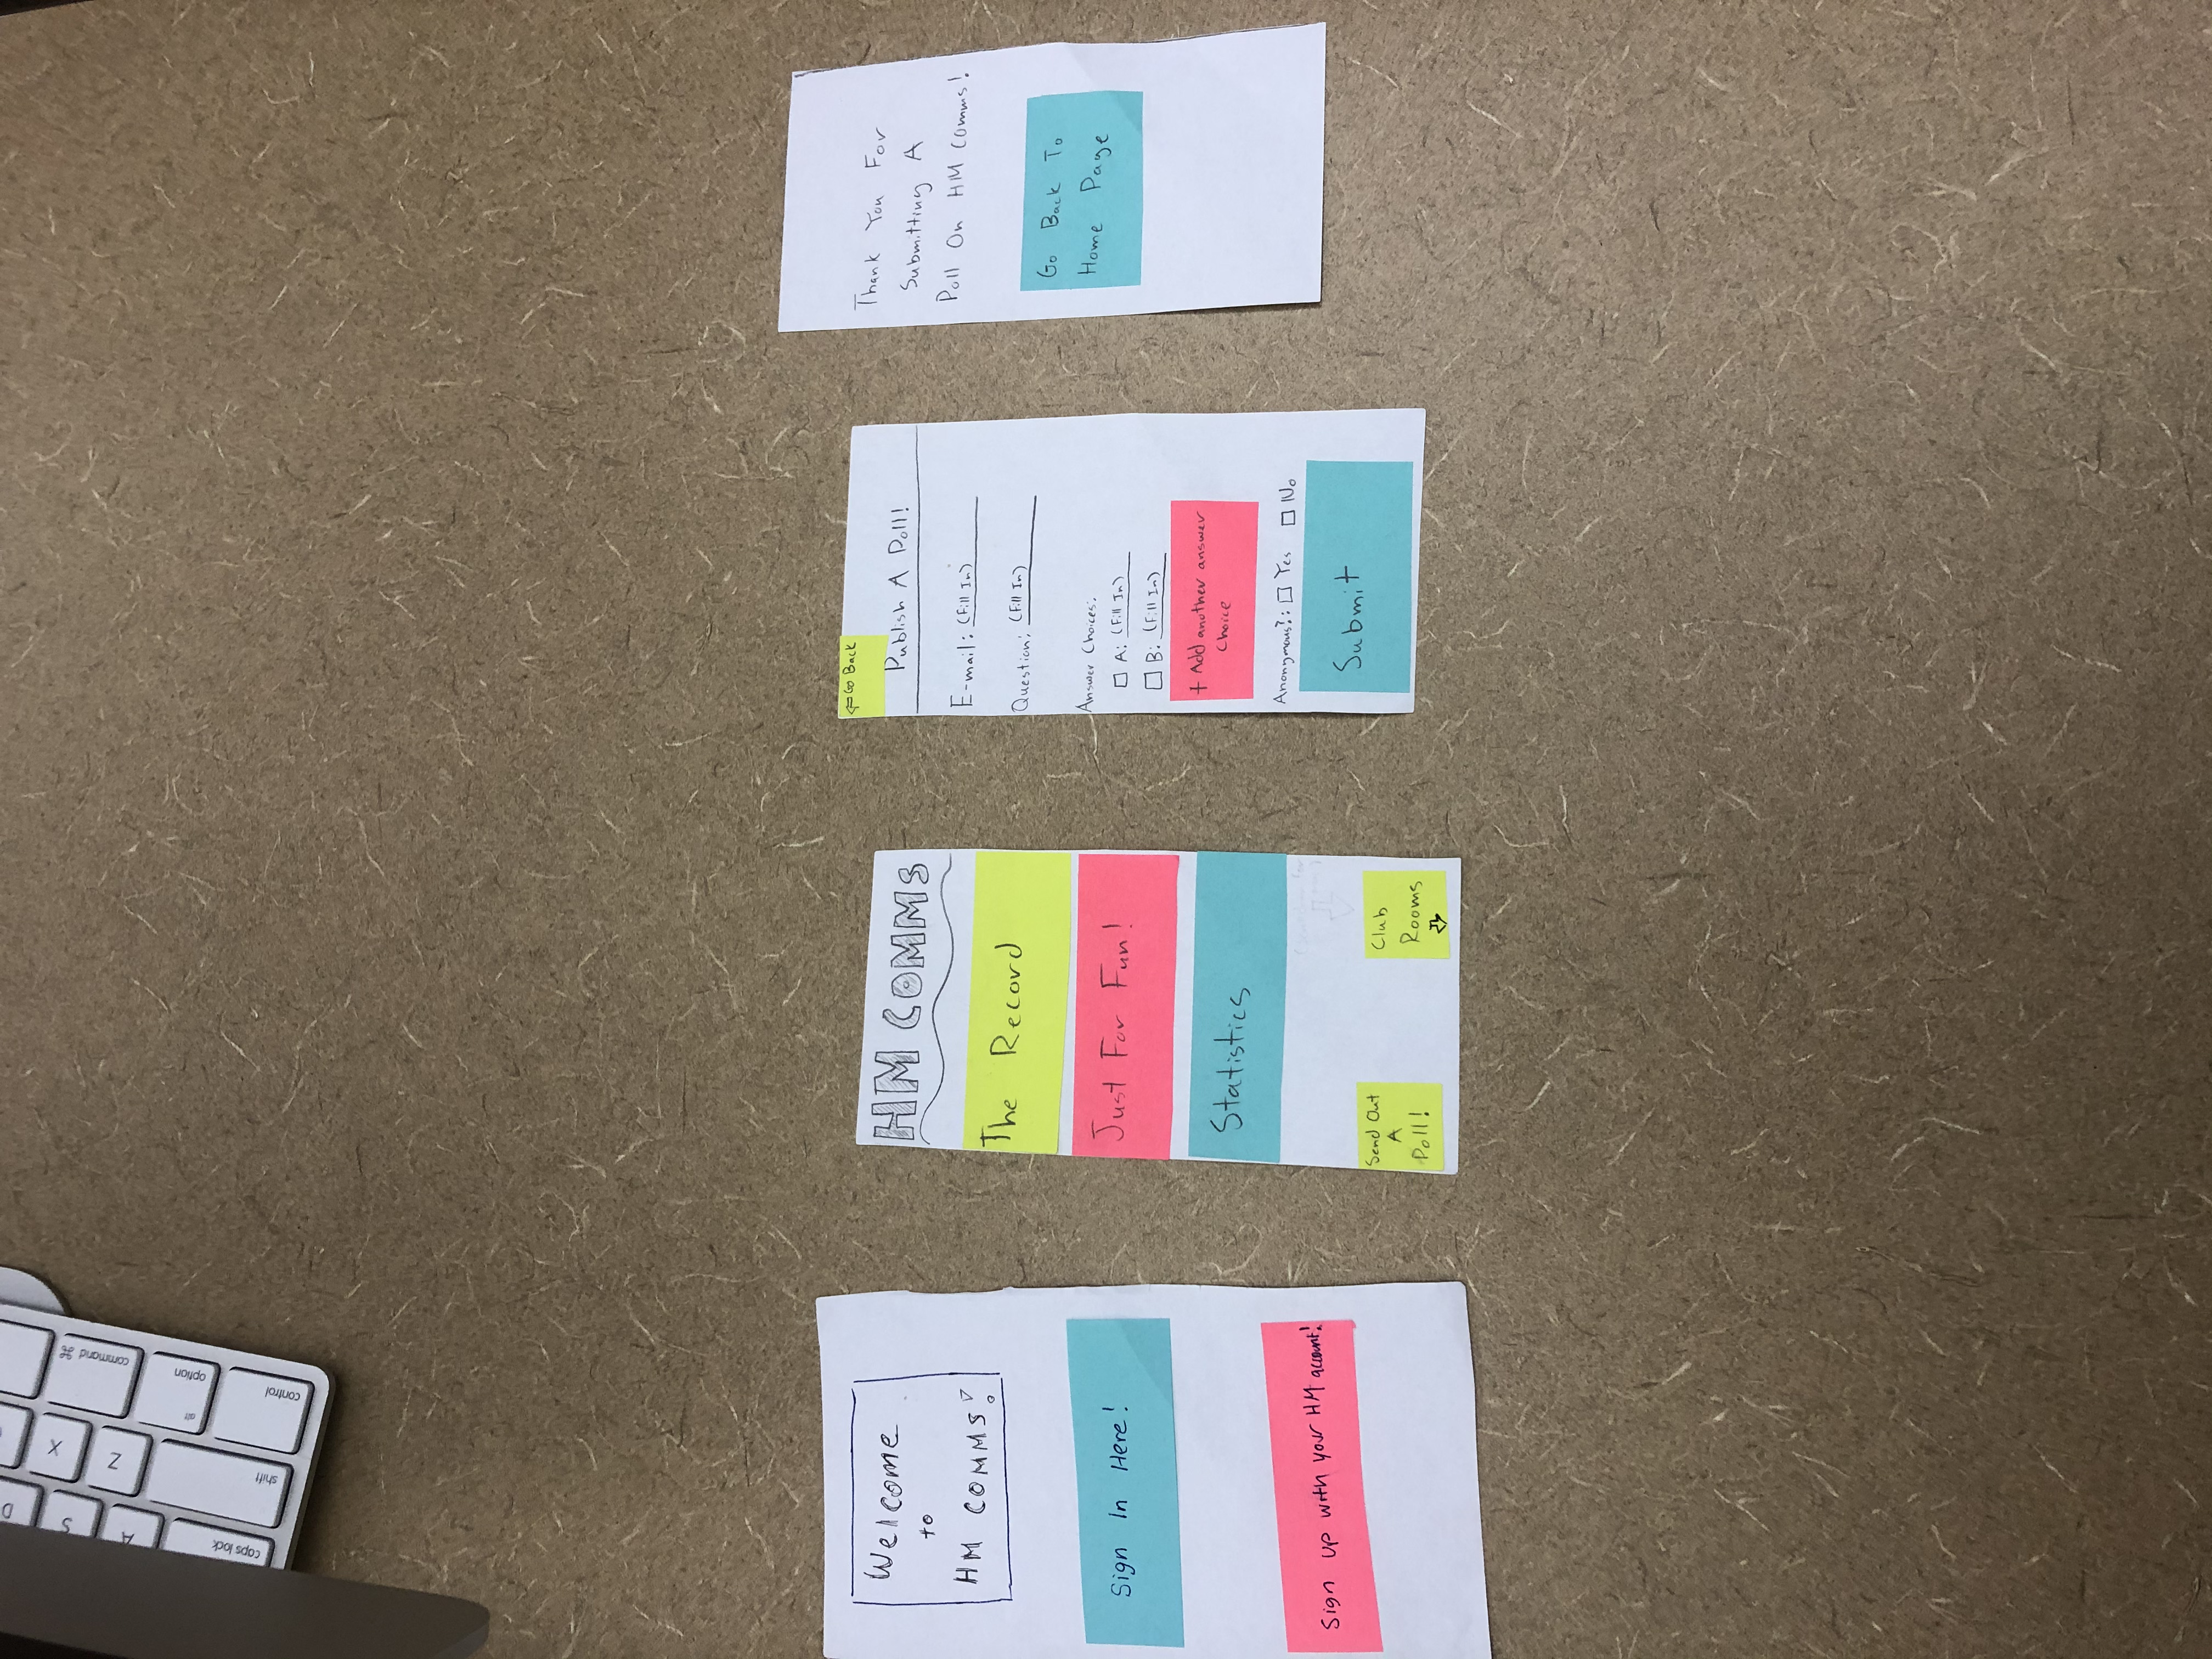 D
S
X
command ⌘
A
Z
alt
option
caps lock
shift
control
Welcome
to
HM COMMS!
Sign In Here!
Sign up with your HM account!
HM COMMS
The Record
Just For Fun!
Statistics
Send Out
A
Poll!
Club
Rooms
⇐ Go Back
Publish A Poll!
E-mail: (Fill In)
Question: (Fill In)
Answer Choices:
A: (Fill In)
B: (Fill In)
+ Add another answer
choice
Anonymous?: Yes No
Submit
Thank You For
Submitting A
Poll On HM Comms!
Go Back To
Home Page